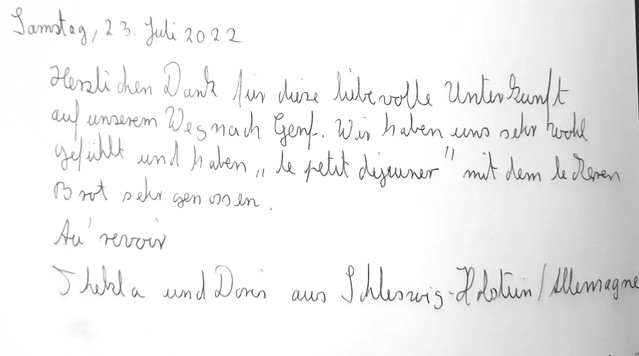 Samstag, 23. Juli 2022
Herzlichen Dank für diese liebevolle Unterkunft
auf unserem Weg nach Genf. Wir haben uns sehr wohl
gefühlt und haben „le petit dejeuner" mit dem leckeren
Brot sehr genossen.
Au' revoir
Thekla und Doris aus Schleswig-Holstein/Allemagne